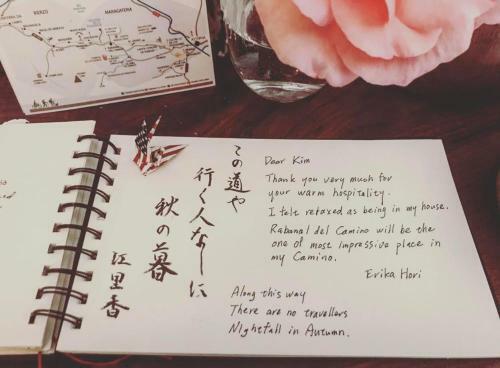 BIERZO
MARAGATERIA
この道や
行く人なしに
秋の暮
江里香
Dear Kim
Thank you very much for
your warm hospitality.
I felt relaxed as being in my house.
Rabanal del Camino will be the
one of most impressive place in
my Camino.
Erika Hori
Along this way
There are no travellers
Nightfall in Autumn.